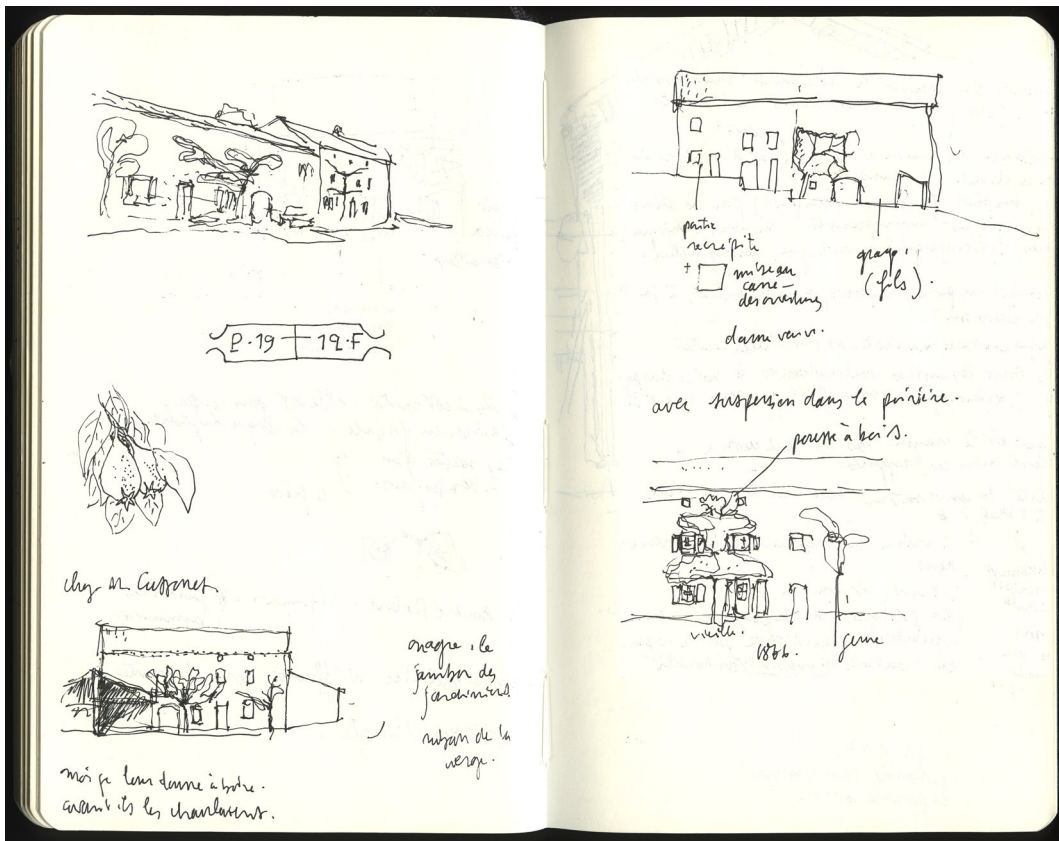 P·19 — 19·F
chez M.
onagre, le
jambon des
jardiniers
ruban de la
verge.
moi je leur donne à boire.
avant ils les
partie
recrépite
+ mise au
carré
des ouvertures
garage,
(fils).
dame
avec suspension dans le
pousse à bois.
vieille.
1866.
jeune